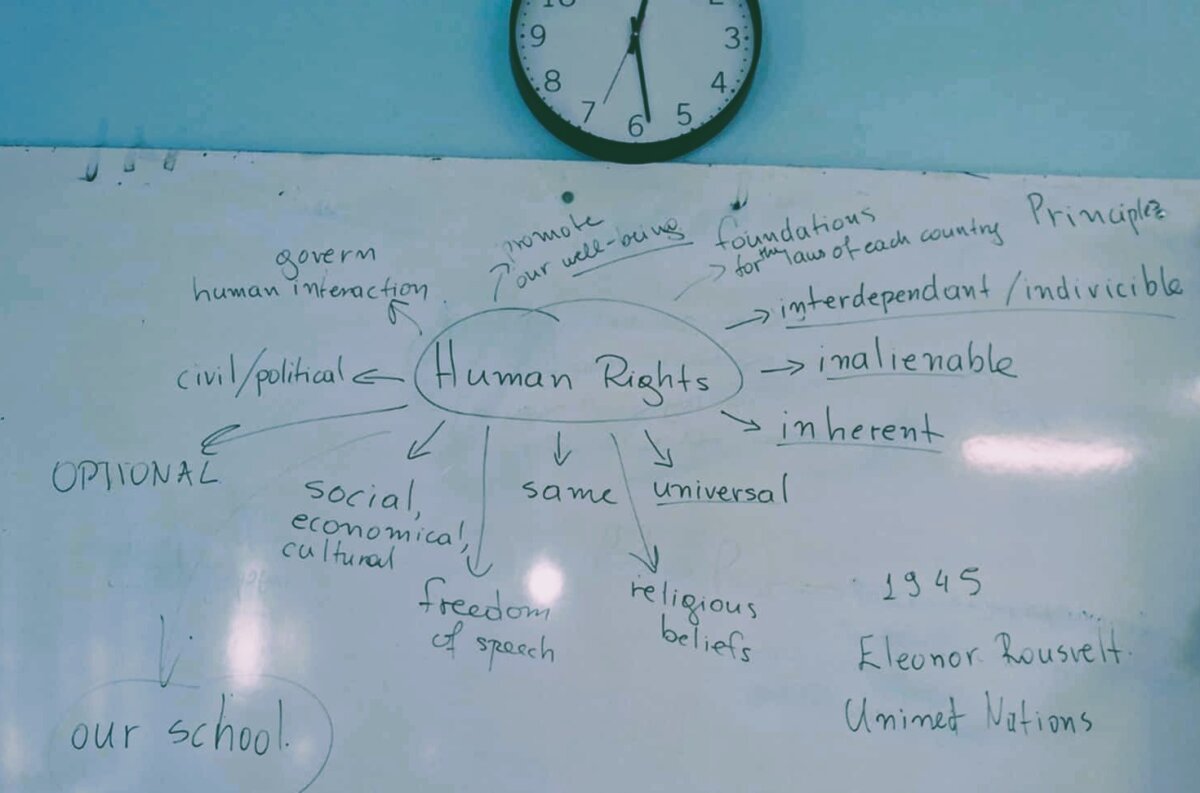 10
2
9
3
8
4
7
6
5
promote
our well-being
foundations
for the laws of each country
Principles
govern
human interaction
interdependant / indivicible
civil/political
Human Rights
inalienable
inherent
OPTIONAL
social,
economical,
cultural
same
universal
freedom
of speech
religious
beliefs
1945
Eleonor Rousvelt.
Unimet Nations
our school.